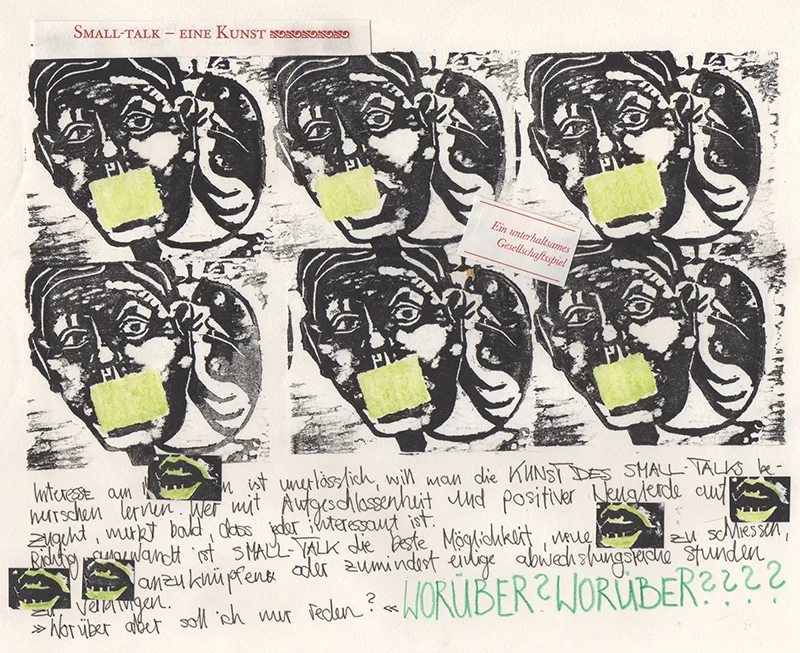 SMALL-TALK – EINE KUNST
Ein unterhaltsames
Gesellschaftsspiel
Interesse am ist unerlässlich, will man die KUNST DES SMALL-TALKS be-
herrschen lernen. Wer mit Aufgeschlossenheit und positiver Neugierde auf
zugeht, merkt bald, dass jeder interessant ist.
Richtig angewandt ist SMALL-TALK die beste Möglichkeit, neue zu schliessen,
anzuknüpfen oder zumindest einige abwechslungsreiche Stunden
zu verbringen.
»Worüber aber soll ich nur reden?« WORÜBER? WORÜBER????